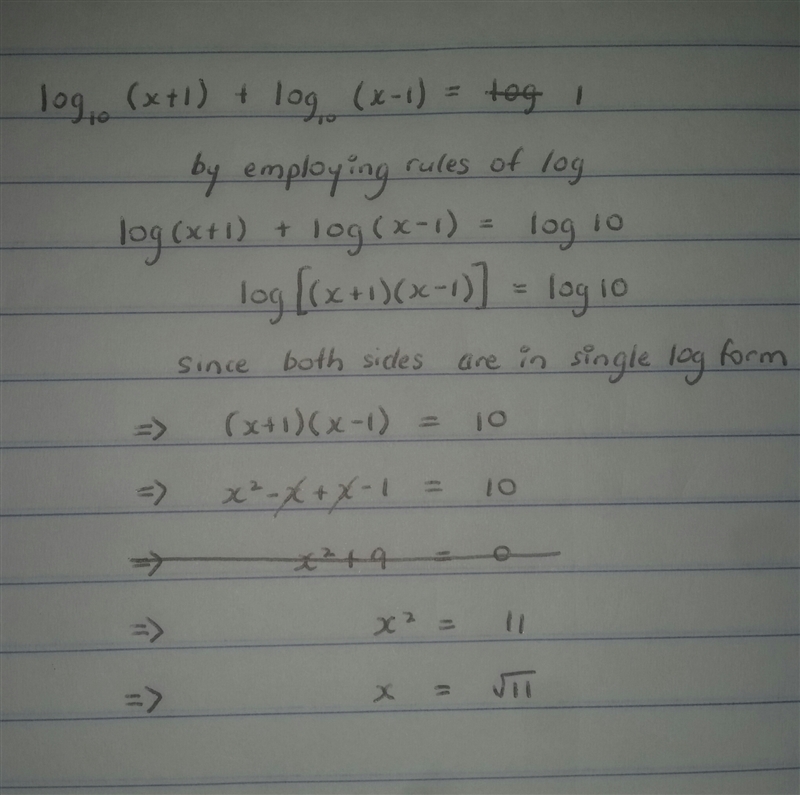 log₁₀ (x+1) + log₁₀ (x-1) = ~~log~~ 1
by employing rules of log
log(x+1) + log(x-1) = log 10
log[(x+1)(x-1)] = log 10
since both sides are in single log form
=> (x+1)(x-1) = 10
=> x² - ~~x~~ + ~~x~~ - 1 = 10
~~=> x² + 9 = 0~~
=> x² = 11
=> x = √11